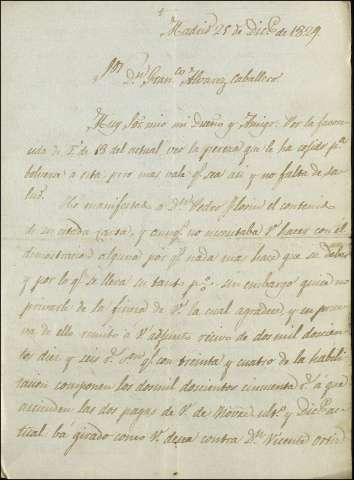 Madrid 25 de Dic.e de 1829
S.or D.n Fran.co Alvarez Caballero
Muy Sor. mio mi Dueño y Amigo: Por la favore
cida de V. de 18 del actual veo la pereza que le ha cojido p.a
bolver a esta pero mas vale q.e sea asi y no falta de sa
lud.
He manifestado a D.n Pedro el contenido
de su citada carta, y aunq.e no necesitaba V. hacer con el
demostracion alguna por q.e nada mas hace que su deber
y por lo q.e se lleva su tanto p.% sin embargo quiere no
privarle de la fineza de V. la cual agradece y en prue
va de ello remito a V. adjunto recivo de dos mil doscien
tos diez y seis r.s que con treinta y cuatro de la habili
tacion componen los dos mil doscientos cincuenta r.s a que
ascienden las dos pagas de V. de Novre. ult.o y Dic.e ac
tual. ha girado como V. desea contra D.n Vicente Ortiz